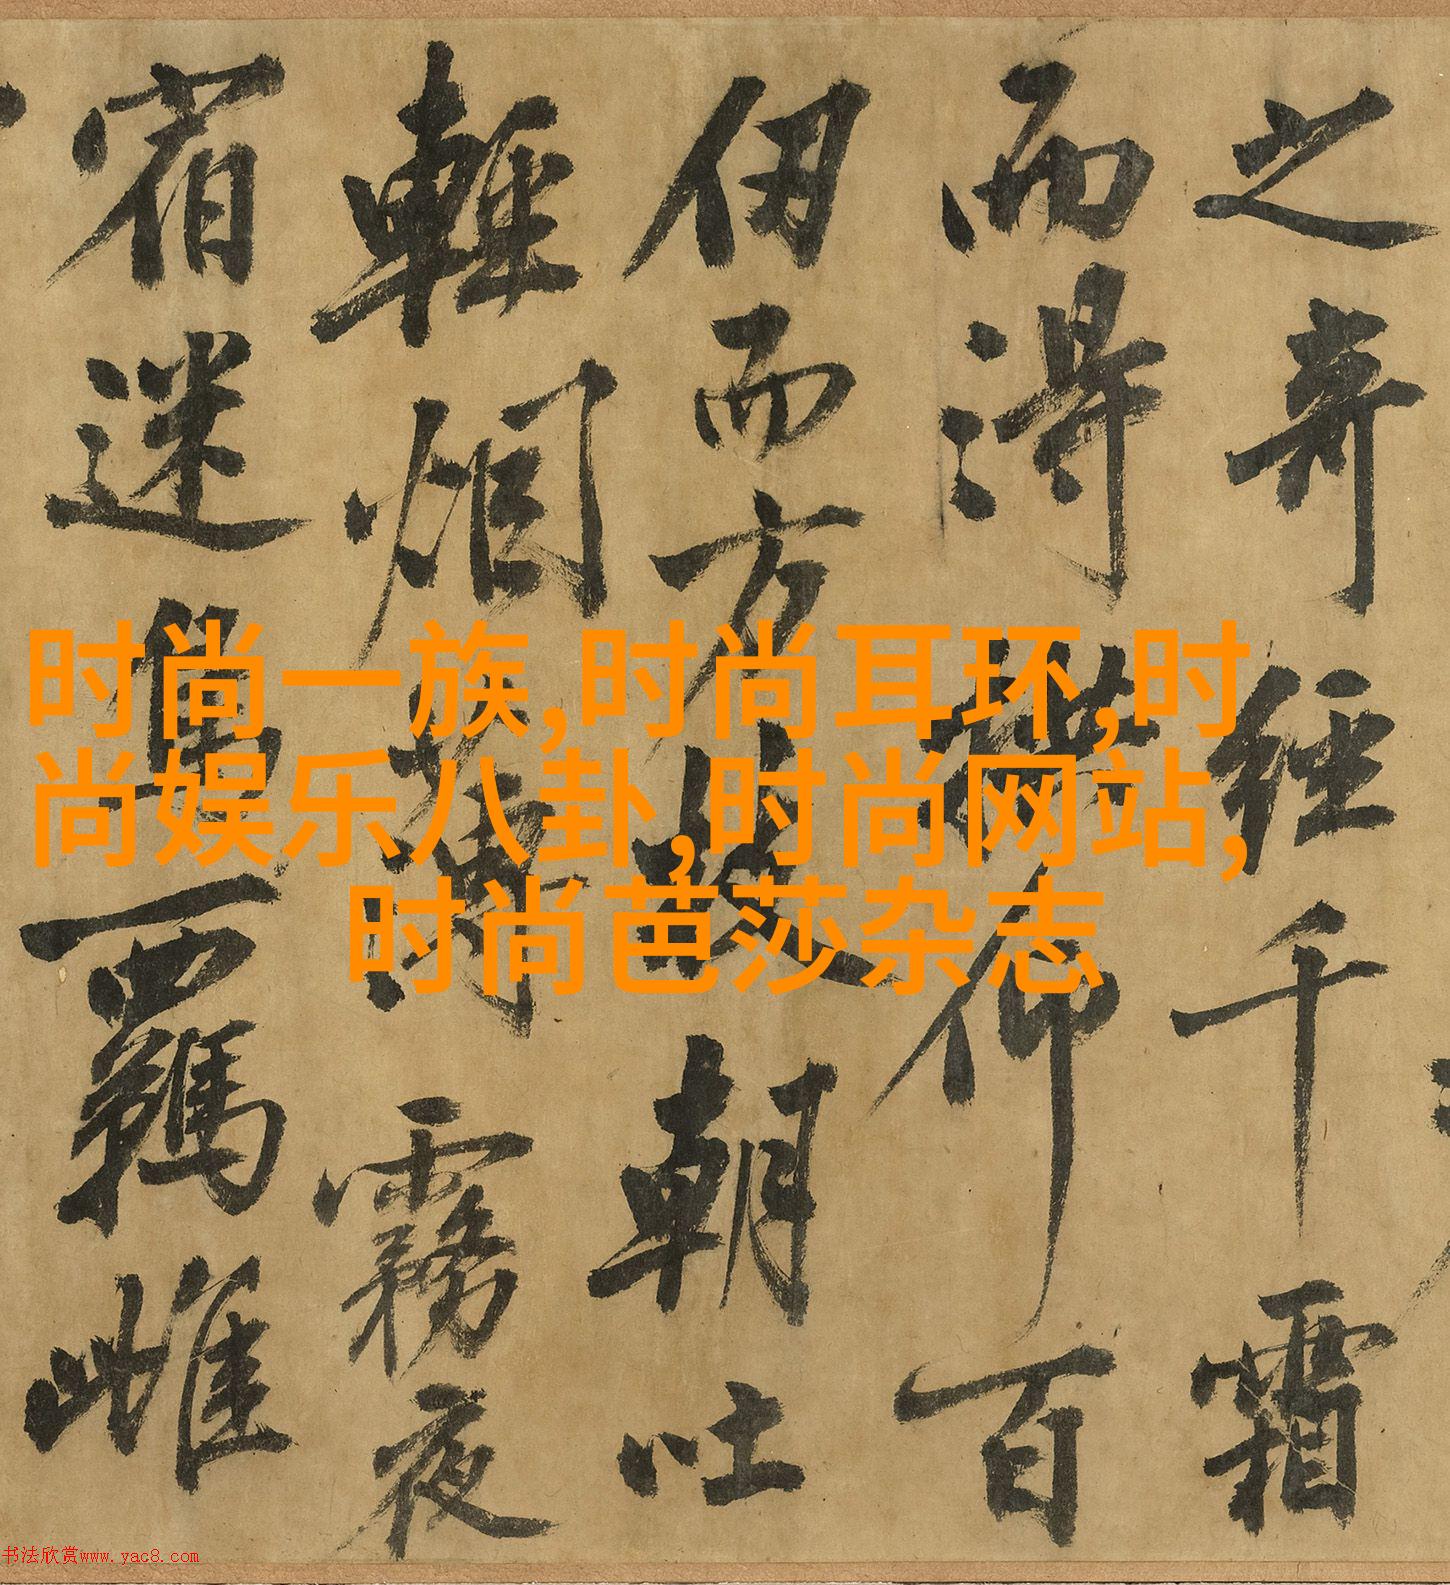 之奇經千霜
而得拱仰百
仞而方枝朝吐
輕烟薄霧夜
宿迷鳥羈雌
时尚一族,时尚耳环,时
尚娱乐八卦,时尚网站,
时尚芭莎杂志
书法欣赏www.yac8.com